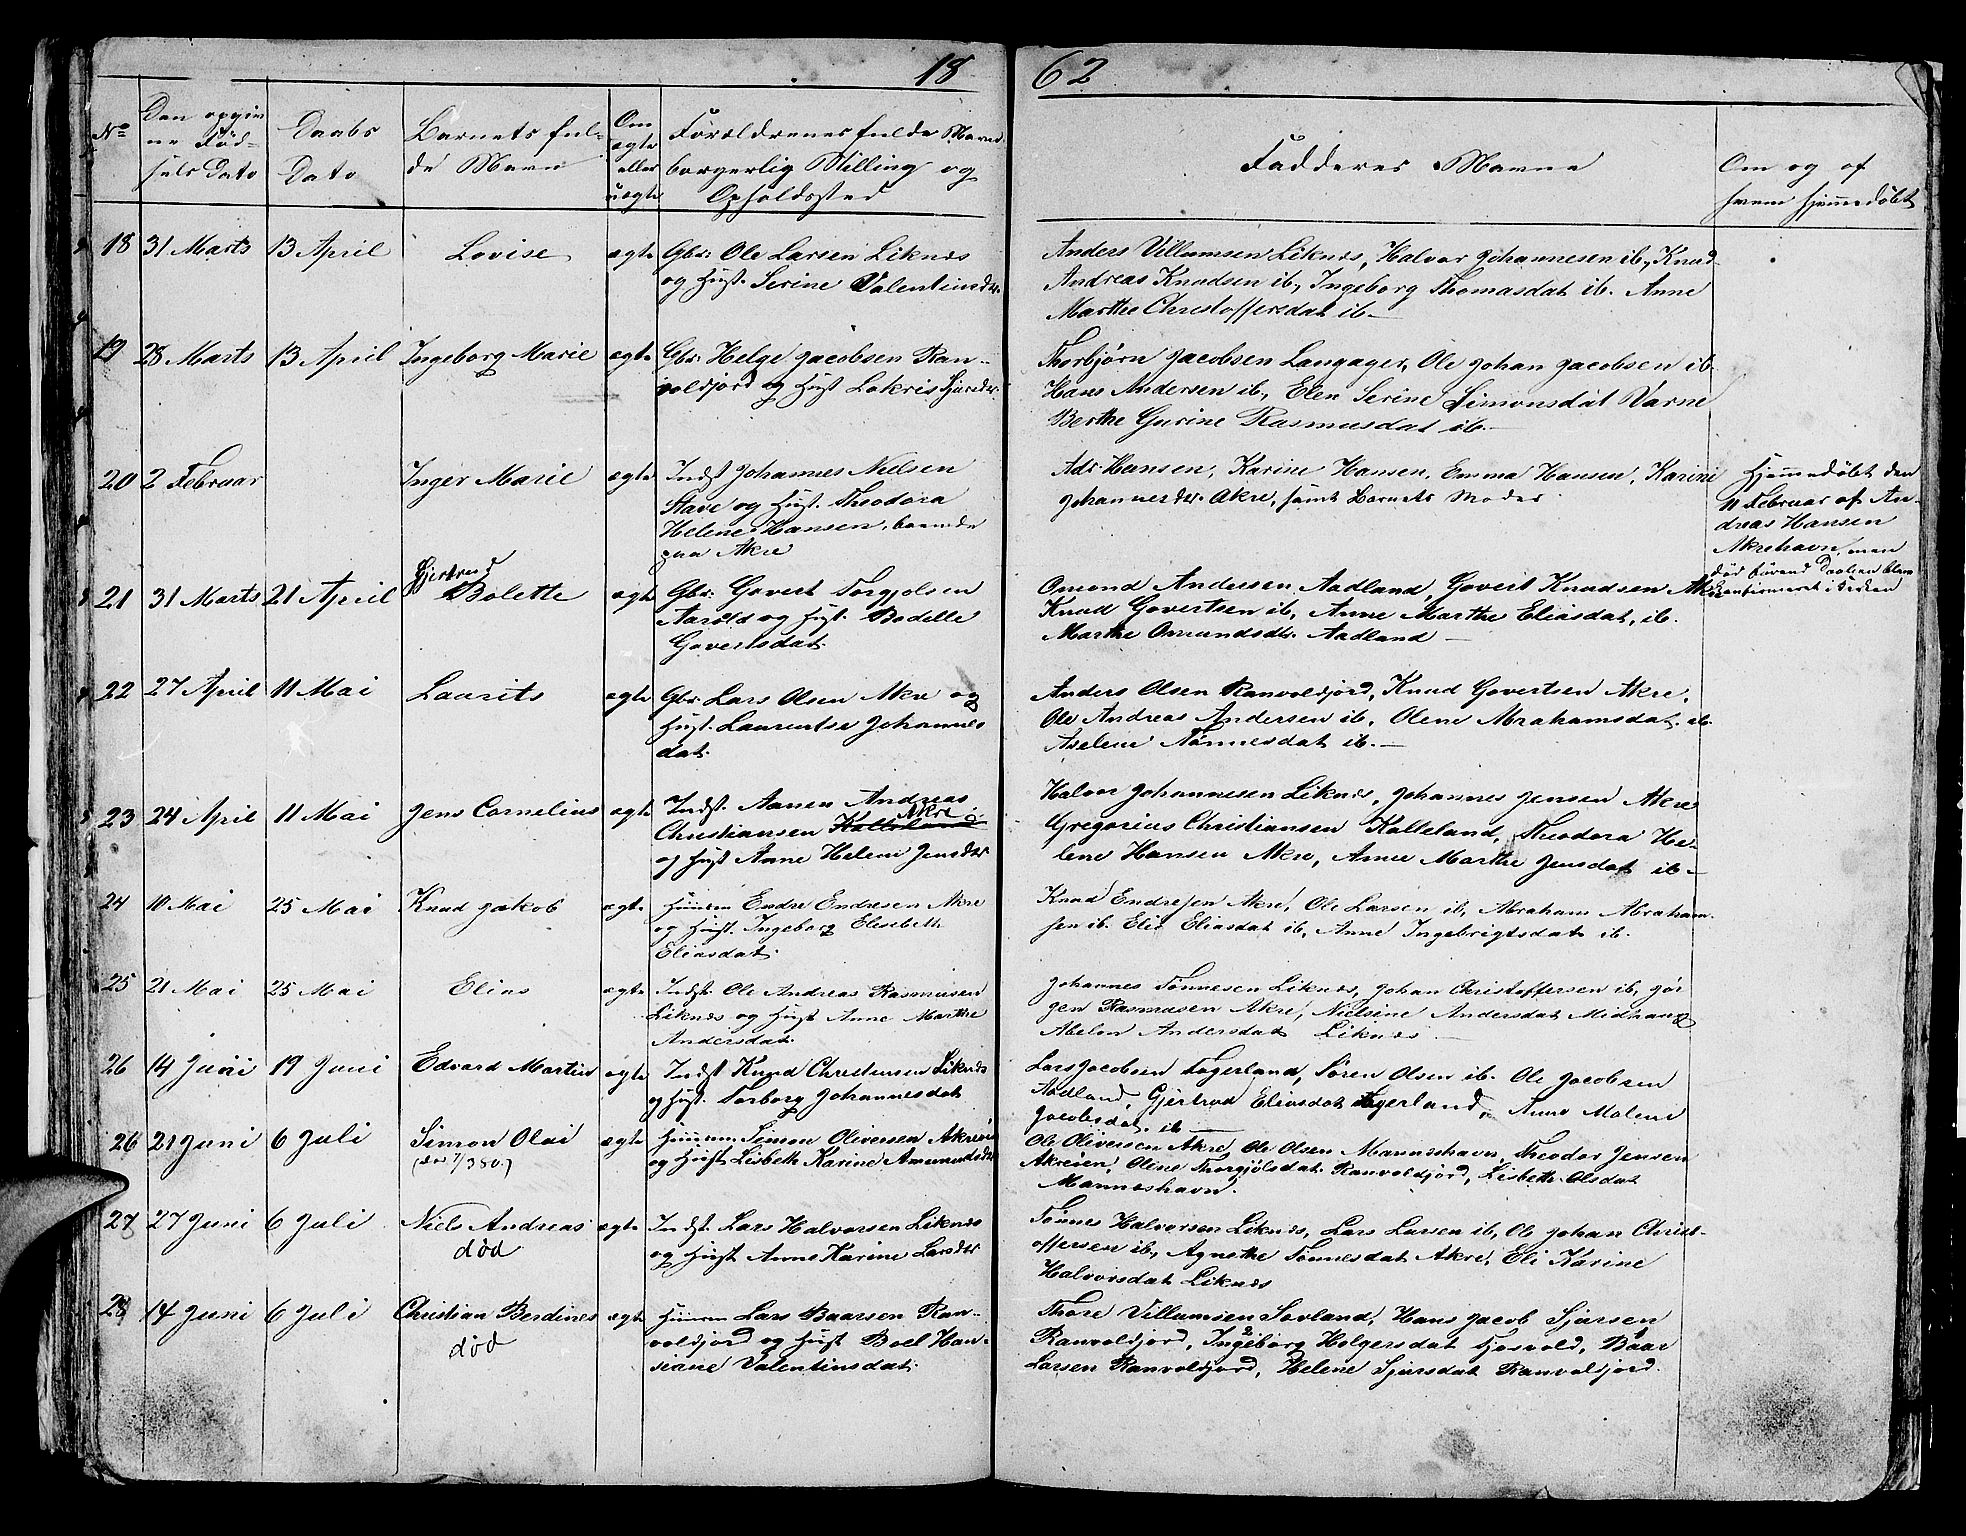 18 62
No
Den opgiv
ne Fød-
sels Dato
Daabs
Dato
Barnets ful-
de Navn
Om
ægte
eller
uægte
Forældrenes fulde Navne
borgerlig Stilling og
Opholdssted
Faddernes Navne
Om og af
hvem hjemmedøbt
18 31 Marts 13 April Lovise ægte Gbr: Ole Larsen Liknes
og Hust. Serine Valentinsdtr.
Anders Villumsen Liknes, Halvor Johannesen ib, Knud
Andreas Knudsen ib, Ingeborg Thomasdat ib. Anne
Marthe Christoffersdat ib.
19 28 Marts 13 April Ingeborg Marie ægte Gbr: Helge Jacobsen Ran-
voldjord og Hust Lakris Sjursdtr.
Thorbjørn Jacobsen Langager, Ole Johan Jacobsen ib.
Hans Andersen ib, Elen Serine Simonsdat Varne
Berthe Gurine Rasmusdat ib.
20 2 Februar Inger Marie ægte Indst Johannes Nielsen
Stave og Hust. Theodora
Helene Hansen, boende
paa Akre
Adr. Hansen, Karine Hansen, Emma Hansen, Karine
Johannesdtr. Akre, samt Barnets Moder.
Hjemmedøbt den
11 Februar af An-
dreas Hansen
Akrehavn, men
død førend Daaben blev
konfirmeret i Kirken
21 31 Marts 21 April Gjertrud
Bolette ægte Gbr: Govert Torgjolsen
og Hust. Bodelle
Govertsdat.
Omond Andersen Aadland, Govert Knudsen Akre
Knud Govertsen ib, Anne Marthe Eliasdat, ib.
Marthe Omundsdtr. Aadland
22 27 April 11 Mai Laurits ægte Gbr Lars Olsen Akre og
Hust. Laurentse Johannes
dat.
Anders Olsen Ranvoldjord, Knud Govertsen Akre,
Ole Andreas Andersen ib, Olene Abrahamsdat. ib.
Axelene Tønnesdat ib.
23 24 April 11 Mai Jens Cornelius ægte Indst. Aanen Andreas
Christiansen Kalleland Akre
og Hust Anne Helene Jensdtr
Halvor Johannesen Liknes, Johannes Jensen Akre
Gregorius Christiansen Kalleland, Theodora He-
lene Hansen Akre, Anne Marthe Jensdat ib
24 10 Mai 25 Mai Knud Jakob ægte Huusm Endre Endresen Akre
og Hust. Ingeborg Elisebeth
Eliasdat.
Knud Endresen Akre, Ole Larsen ib, Abraham Abraham-
sen ib. Elie Eliasdat ib, Anne Ingebrigtsdat ib.
25 21 Mai 25 Mai Elias ægte Indst. Ole Andreas Rasmusen
Liknes og Hust Anne Marthe
Andersdat.
Johannes Tønnesen Liknes, Johan Christoffersen ib, Jør
gen Rasmusen Akre, Nielsine Andersdat Midhaug
Abelon Andersdat Liknes
26 14 Juni 19 Juni Edvard Martin ægte Indst Knud Christensen Liknes
og Hust. Torborg Johannesdat
Lars Jacobsen Fagerland, Søren Olsen ib. Ole Jacobsen
Aadland, Gjertrud Eliasdat Fagerland, Anne Malene
Jacobsdat. ib
26 21 Juni 6 Juli Simon Olai ægte Huusm Simon Oliversen Akreøen
og Hust Lisbeth Karine Amundsdtr
Ole Oliversen Akre, Ole Olsen Manneshavn, Theodor Jensen
Akreøen, Oline Thorgjølsdat Ranvoldjord, Lisbeth Olsdat
Manneshavn.
27 27 Juni 6 Juli Niels Andreas ægte Indst. Lars Halvorsen Liknes
død
og Hust Anne Karine Larsdtr
Tønnes Halvorsen Liknes, Lars Larsen ib, Ole Johan Christ-
offersen ib, Agnethe Tønnesdat Akre, Eli Karine
Halvorsdat Liknes
28 14 Juni 6 Juli Christian Berdines ægte Huusm Lars Baarsen Ran-
død
voldjord og Hust Boel Han-
siane Valentinsdat.
Thore Villumsen Sovland, Hans Jacob Sjursen
Ranvoldjord, Ingeborg Holgersdat Fosvold, Baar
Larsen Ranvoldjord, Helene Sjursdat Ranvoldjord.